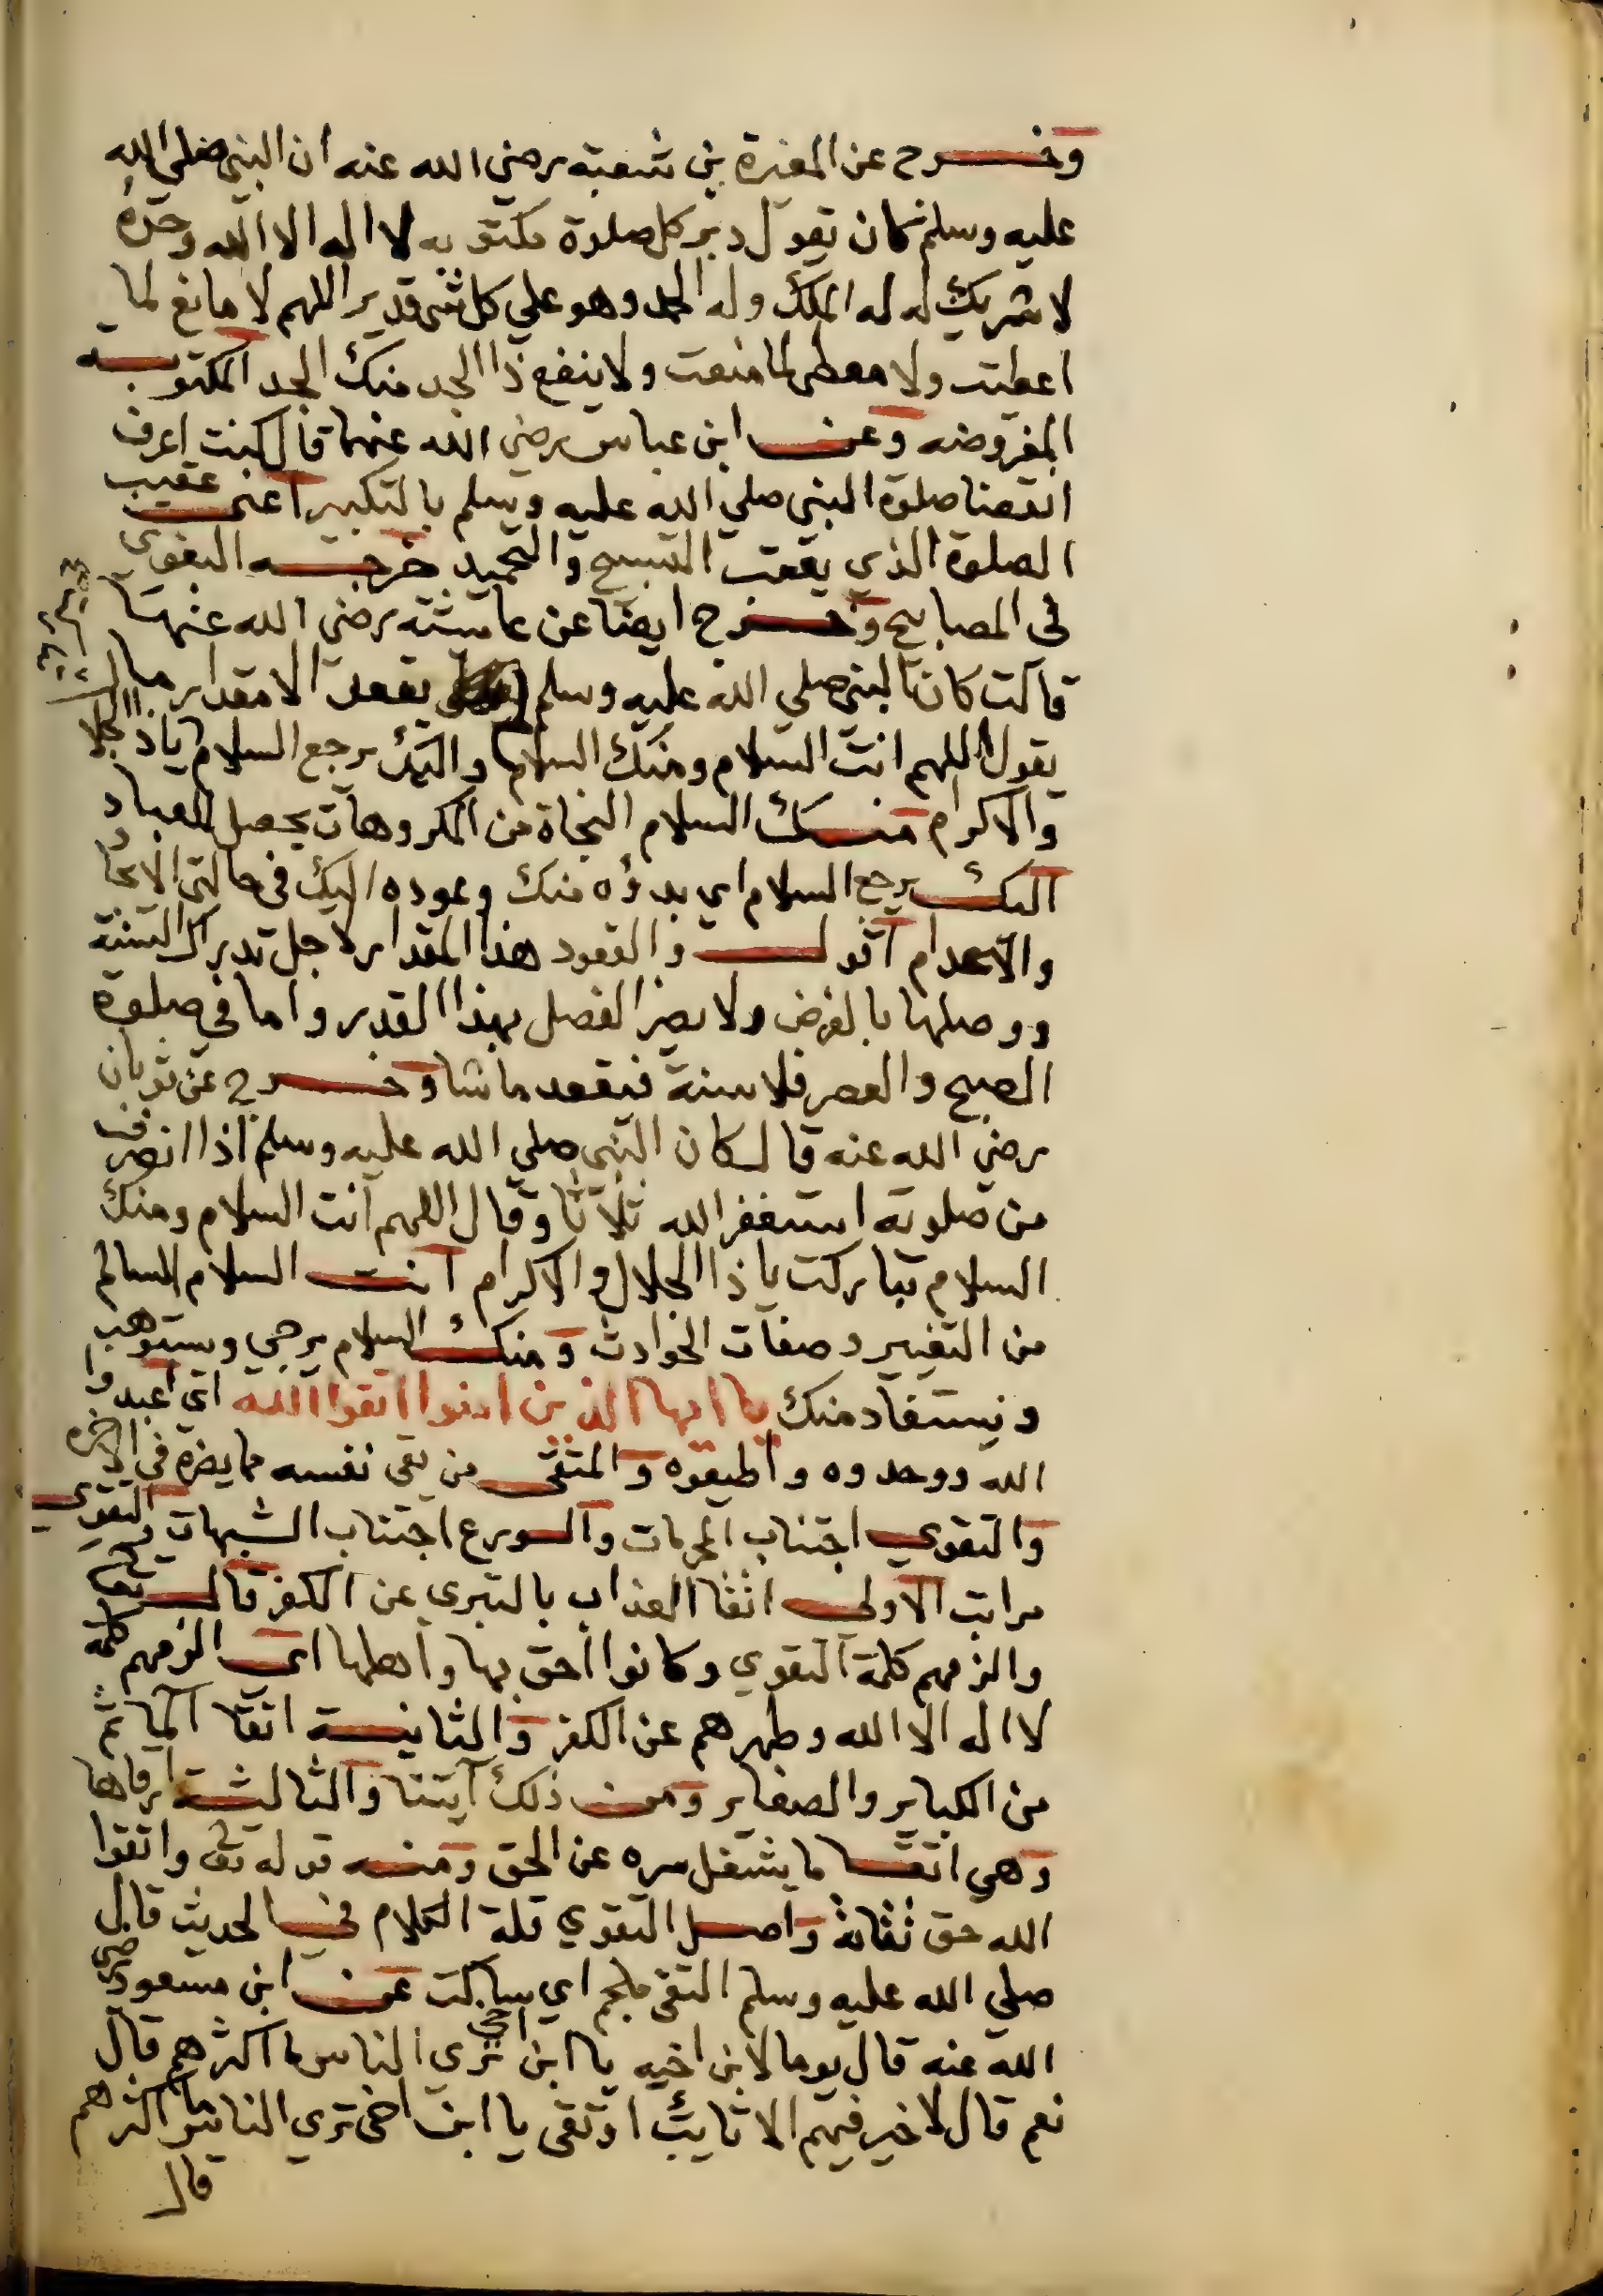 وخرج عن المغيرة بن شعبة رضي الله عنه ان النبي صلي الله
عليه وسلم كان يقول دبر كل صلوة مكتوبه لا اله الا الله وحده
لا شريك له له الملك وله الحمد وهو علي كل شي قدير اللهم لا مانع لما
اعطيت ولا معطي لما منعت ولا ينفع ذا الجد منك الجد المكتوبه
المفروضه وعن ابن عباس رضي الله عنهما قال كنت اعرف
انقضا صلوة النبي صلي الله عليه وسلم بالتكبير اعني عقيب
الصلوة الذي يعقب التسبيح والتحميد خرجه البغوي
في المصابيح وخرج ايضا عن عايشة رضي الله عنها
قالت كان النبي صلي الله عليه وسلم يقعد الا مقدار ما
يقول اللهم انت السلام ومنك السلام واليك يرجع السلام ياذا الجلال
والاكرام منك السلام النجاة من المكروهات يحصل للعباد
اليك يرجع السلام اي بدؤه منك وعوده اليك في حالتي الايجاد
والاعدام اقول والقعود هذا المقدار لاجل تدارك السنة
ووصلها بالفرض ولا يضر الفصل بهذا القدر واما في صلوة
الصبح والعصر فلا سنة فيقعد ما شا وخرج عن ثوبان
رضي الله عنه قال كان النبي صلي الله عليه وسلم اذا انصرف
من صلوته استغفر الله ثلاثا وقال اللهم انت السلام ومنك
السلام تباركت ياذا الجلال والاكرام انت السلام السالم
من التغيير وصفات الحوادث ومنك السلام يرجي ويستوهب
ويستفاد منك يا ايها الذين امنوا اتقوا الله اي اعبدوا
الله ووحدوه واطيعوه والمتقي من يقي نفسه مما يضره في الاخرة
والتقوي اجتناب المحرمات والورع اجتناب الشبهات والتقوي
مراتب الاولي اتقا العذاب بالتبري عن الكفر قال تعالي
والزمهم كلمة التقوي وكانوا احق بها واهلها اي الزمهم كلمة
لا اله الا الله وطهرهم عن الكفر والثانية اتقا المآثم
من الكباير والصغاير ومن ذلك آيتنا والثالثة ارقاها
وهي اتقا ما يشغل سره عن الحق ومنه قوله تع واتقوا
الله حق تقاته واصل التقوي قلة الكلام في الحديث قال
صلي الله عليه وسلم التقي ملجم اي ساكت عن ابن مسعود رضي
الله عنه قال يوما لابن اخيه يا ابن اخي تري الناس ما اكثرهم قال
نعم قال لا خير فيهم الا تايب او تقي يا ابن اخي تري الناس ما اكثرهم
قال